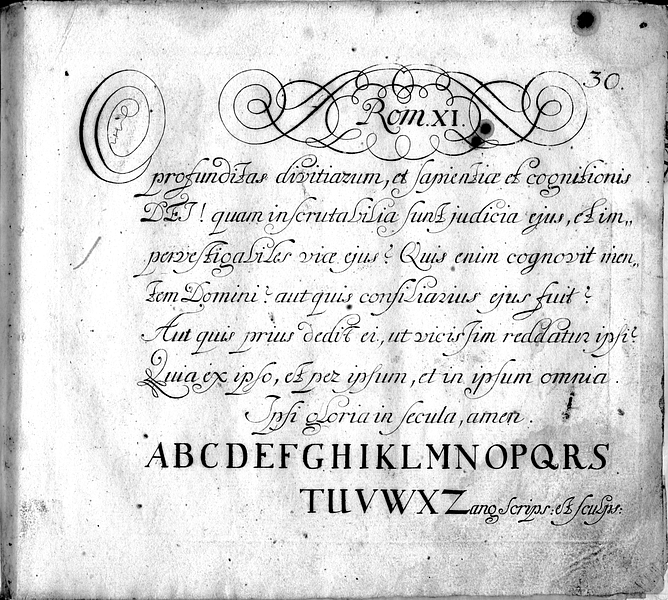 30.
Rom. XI.
O profunditas divitiarum, et sapientiæ et cognitionis
DEI! quam inscrutabilia sunt judicia ejus, et im„
pervestigabiles viæ ejus? Quis enim cognovit men„
tem Domini? aut quis consiliarius ejus fuit?
Aut quis prius dedit ei, ut vicissim reddatur ipsi?
Quia ex ipso, et per ipsum, et in ipsum omnia.
Ipsi gloria in secula, amen.
ABCDEFGHIKLMNOPQRS
TUVWXZang Scrips: et sculps: